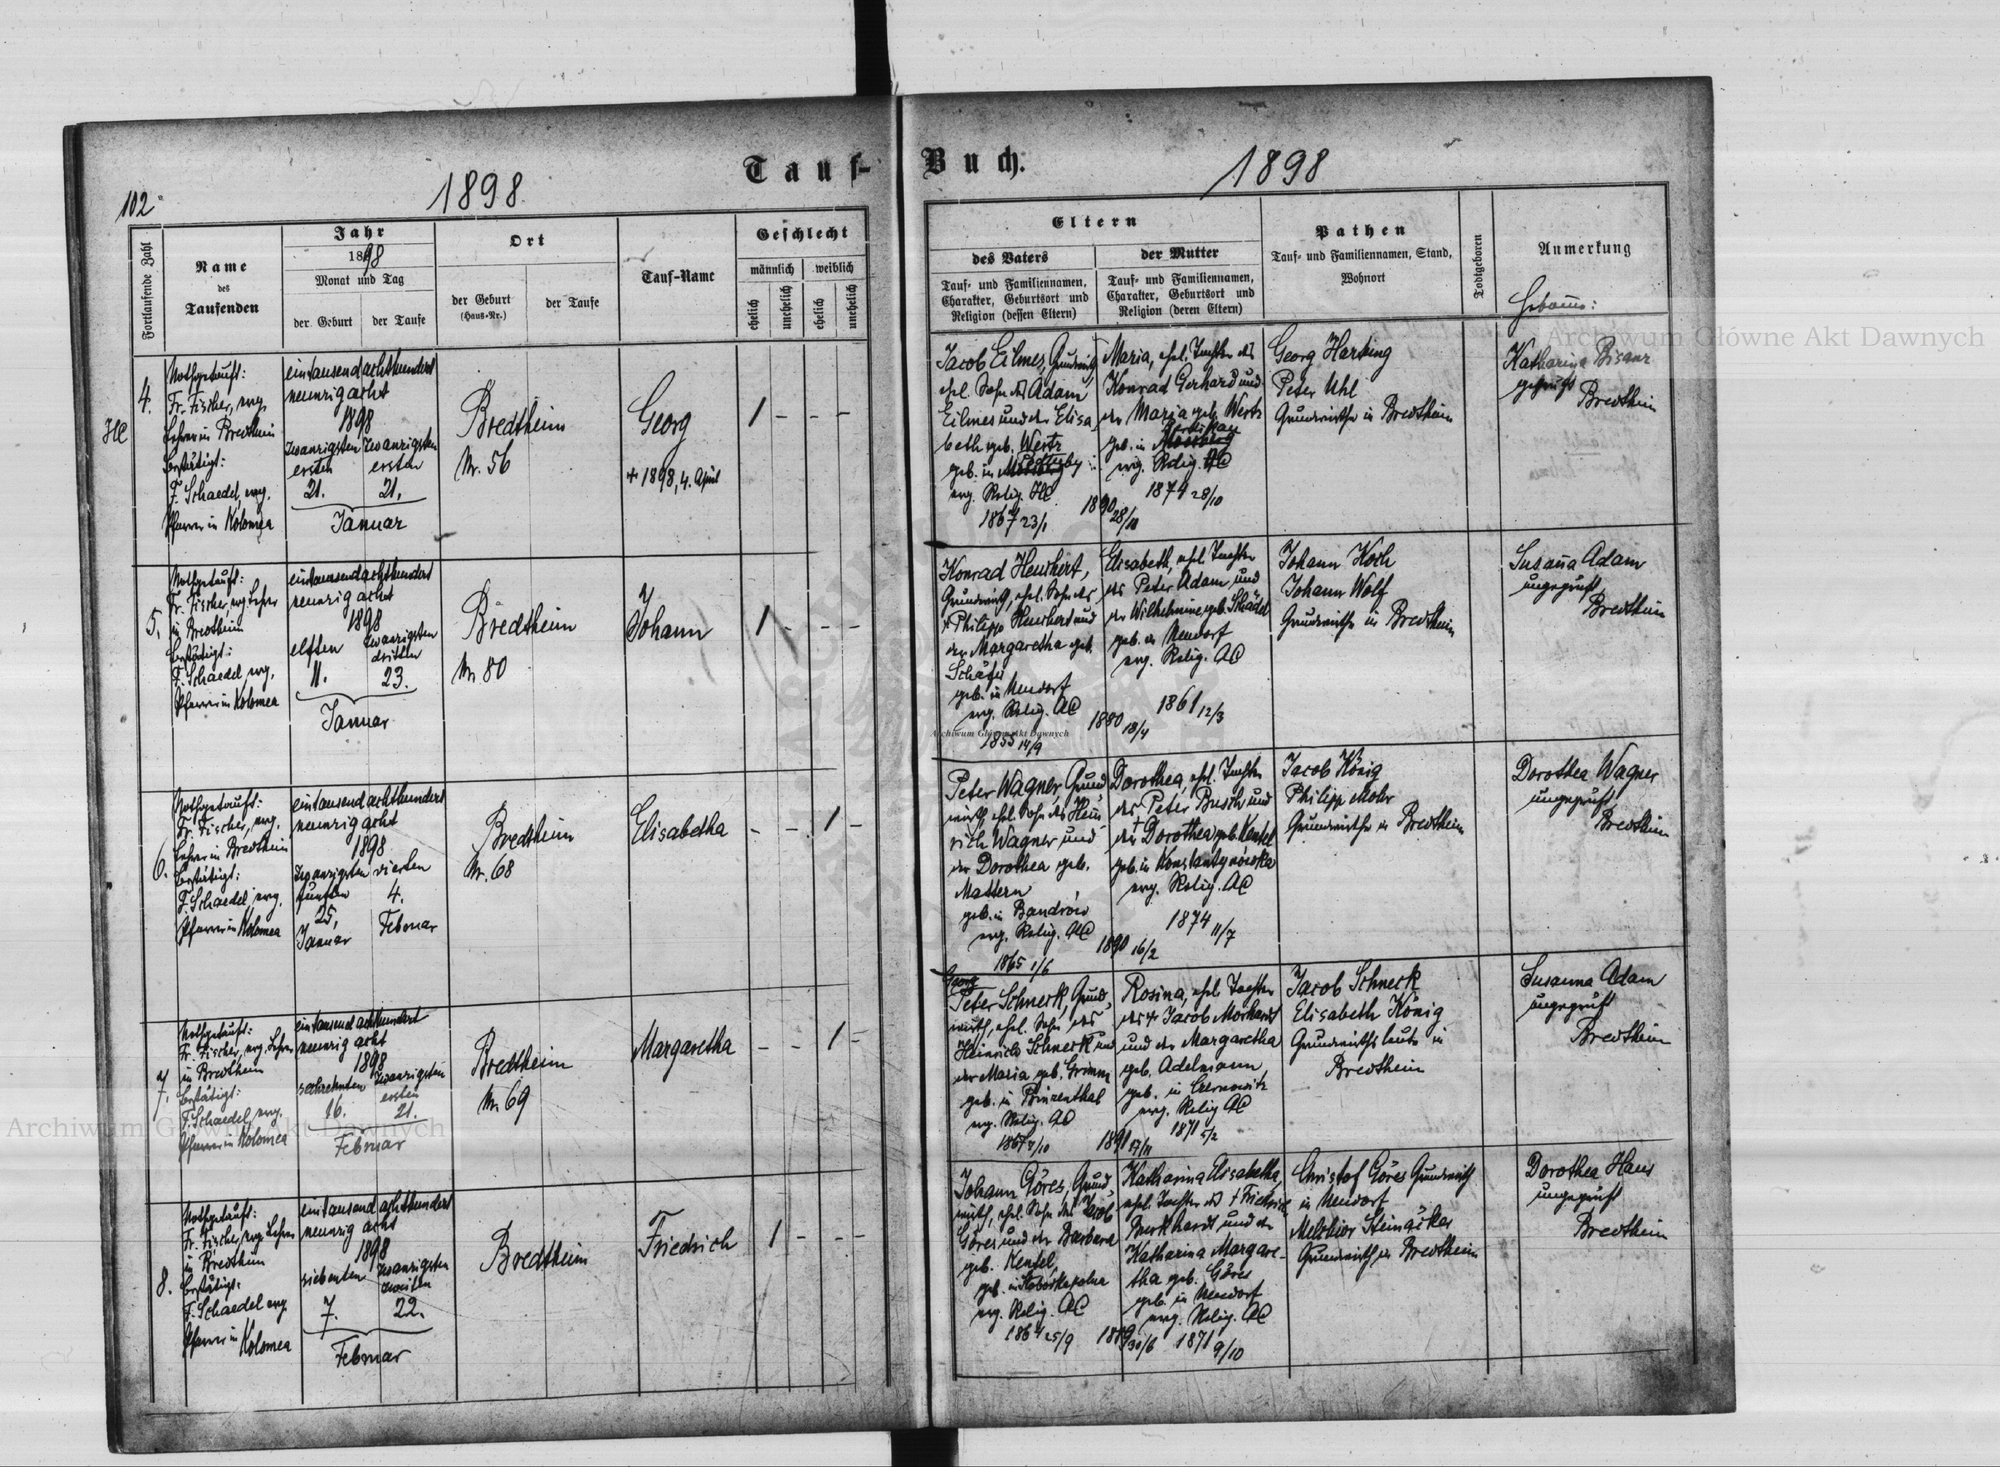 Tauf-
Buch.
102.
1898
1898
Fortlaufende Zahl
Name
des
Taufenden
Jahr
1898
Monat und Tag
der Geburt
der Taufe
Ort
der Geburt
(Haus-Nr.)
der Taufe
Tauf-Name
Geschlecht
männlich
weiblich
ehelich
unehelich
ehelich
unehelich
Eltern
des Vaters
Tauf- und Familiennamen,
Charakter, Geburtsort und
Religion (dessen Eltern)
der Mutter
Tauf- und Familiennamen,
Charakter, Geburtsort und
Religion (deren Eltern)
Pathen
Tauf- und Familiennamen, Stand,
Wohnort
Todtgeboren
Anmerkung
Hebamme:
4.
HC
Nothgetauft:
Fr. Fischer, evg.
Lehrer in Bredtheim
Bestätigt:
F. Schaedel, evg.
Pfarrer in Kolomea
eintausendachthundert
neunzigacht
1898
zwanzigsten zwanzigsten
ersten ersten
21. 21.
Januar
Bredtheim
Nr. 56
Georg
+ 1898, 4. April
1 - - -
Jacob Eilmes, Grundwirth,
ehl. Sohn des Adam
Eilmes und der Elisa
beth geb. Wertz
geb. in
evg. Relig. HC
1867 23/1
1890 28/10
Maria, ehl. Tochter des
Konrad Gerhard und
der Maria geb. Wertz
geb. in
evg. Relig. AC
1874 28/10
Georg Harting
Peter Uhl
Grundwirthe in Bredtheim
Katharina Bisanz
geprüft
Bredtheim
5.
Nothgetauft:
Fr. Fischer, evg. Lehrer
in Bredtheim
Bestätigt:
F. Schaedel evg.
Pfarrer in Kolomea
eintausendachthundert
neunzigacht
1898
elften zwanzigsten
dritten
11. 23.
Januar
Bredtheim
Nr. 80
Johann
1 - - -
Konrad Heuchert,
Grundwirth, ehl. Sohn des
+ Philipp Heuchert und
der Margaretha geb.
Schäfer
geb. in Neudorf
evg. Relig. AC
1855 14/9
1880 18/4
Elisabeth, ehl. Tochter
des Peter Adam und
der Wilhelmine geb. Schädel
geb. in Neudorf
evg. Relig. AC
1861 12/3
Johann Koch
Johann Wolf
Grundwirthe in Bredtheim
Susana Adam
ungeprüft
Bredtheim
6.
Nothgetauft:
Fr. Fischer, evg.
Lehrer in Bredtheim
Bestätigt:
F. Schaedel, evg.
Pfarrer in Kolomea
eintausendachthundert
neunzigacht
1898
zwanzigsten vierten
fünften 4.
25.
Januar Februar
Bredtheim
Nr. 68
Elisabetha
- - 1 -
Peter Wagner, Grund
wirth, ehl. Sohn des Hein
rich Wagner und
der Dorothea geb.
Mattern
geb. in Bandrów
evg. Relig. AC
1865 1/6
1890 16/2
Dorothea, ehl. Tochter
des Peter Busch und
der Dorothea geb. Kentel
geb. in Konstantynówka
evg. Relig. AC
1874 11/7
Jacob König
Philipp Mohr
Grundwirthe in Bredtheim
Dorothea Wagner
ungeprüft
Bredtheim
7.
Nothgetauft:
Fr. Fischer, evg. Lehrer
in Bredtheim
Bestätigt:
F. Schaedel, evg.
Pfarrer in Kolomea
eintausend achthundert
neunzig acht
1898
sechzehnten zwanzigsten
ersten
16. 21.
Februar
Bredtheim
Nr. 69
Margaretha
- - 1 -
Georg
Peter Schneck, Grund
wirth, ehl. Sohn des
Heinrich Schneck und
der Maria geb. Grimm
geb. in Prinzenthal
evg. Relig. AC
1867 7/10
1891 17/11
Rosina, ehl. Tochter
des + Jacob Morhardt
und der Margaretha
geb. Adelmann
geb. in Czernowitz
evg. Relig AC
1871 5/2
Jacob Schneck
Elisabeth König
Grundwirthsleute in
Bredtheim
Susanna Adam
ungeprüft
Bredtheim
8.
Nothgetauft:
Fr. Fischer, evg. Lehrer
in Bredtheim
Bestätigt:
F. Schaedel evg.
Pfarrer in Kolomea
eintausend achthundert
neunzig acht
1898
siebenten zwanzigsten
zweiten
7. 22.
Februar
Bredtheim
Friedrich
1 - - -
Johann Göres, Grund
wirth, ehl. Sohn des Jacob
Göres und der Barbara
geb. Kentel,
geb. in
evg. Relig. AC
1864 25/9
1889 30/6
Katharina Elisabetha,
ehl. Tochter des + Friedrich
Burkhardt und der
Katharina Margare-
tha geb. Göres
geb. in Neudorf
evg. Relig. AC
1871 9/10
Christof Göres Grundwirth
in Neudorf
Melchior Steinäcker
Grundwirth in Bredtheim
Dorothea Hans
ungeprüft
Bredtheim
Archiwum Główne Akt Dawnych
Archiwum Główne Akt Dawnych
Archiwum Główne Akt Dawnych